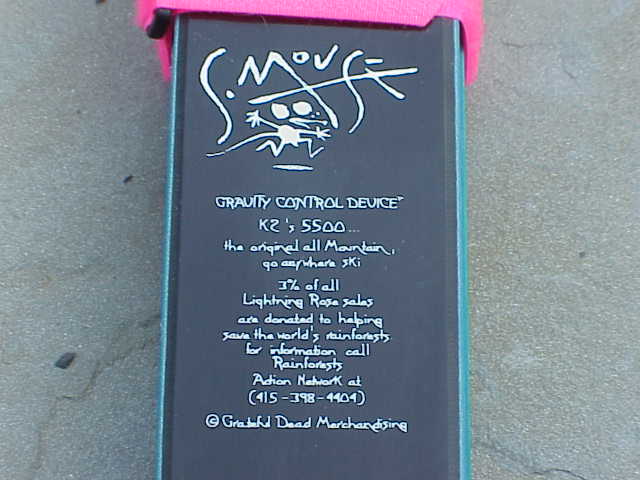 S. MOUSE
GRAVITY CONTROL DEVICE™
K2's 5500...
the original all Mountain,
go anywhere ski
3% of all
Lightning Rose sales
are donated to helping
save the world's rainforests.
for information call
Rainforests
Action Network at
(415-398-4404)
© Grateful Dead Merchandising